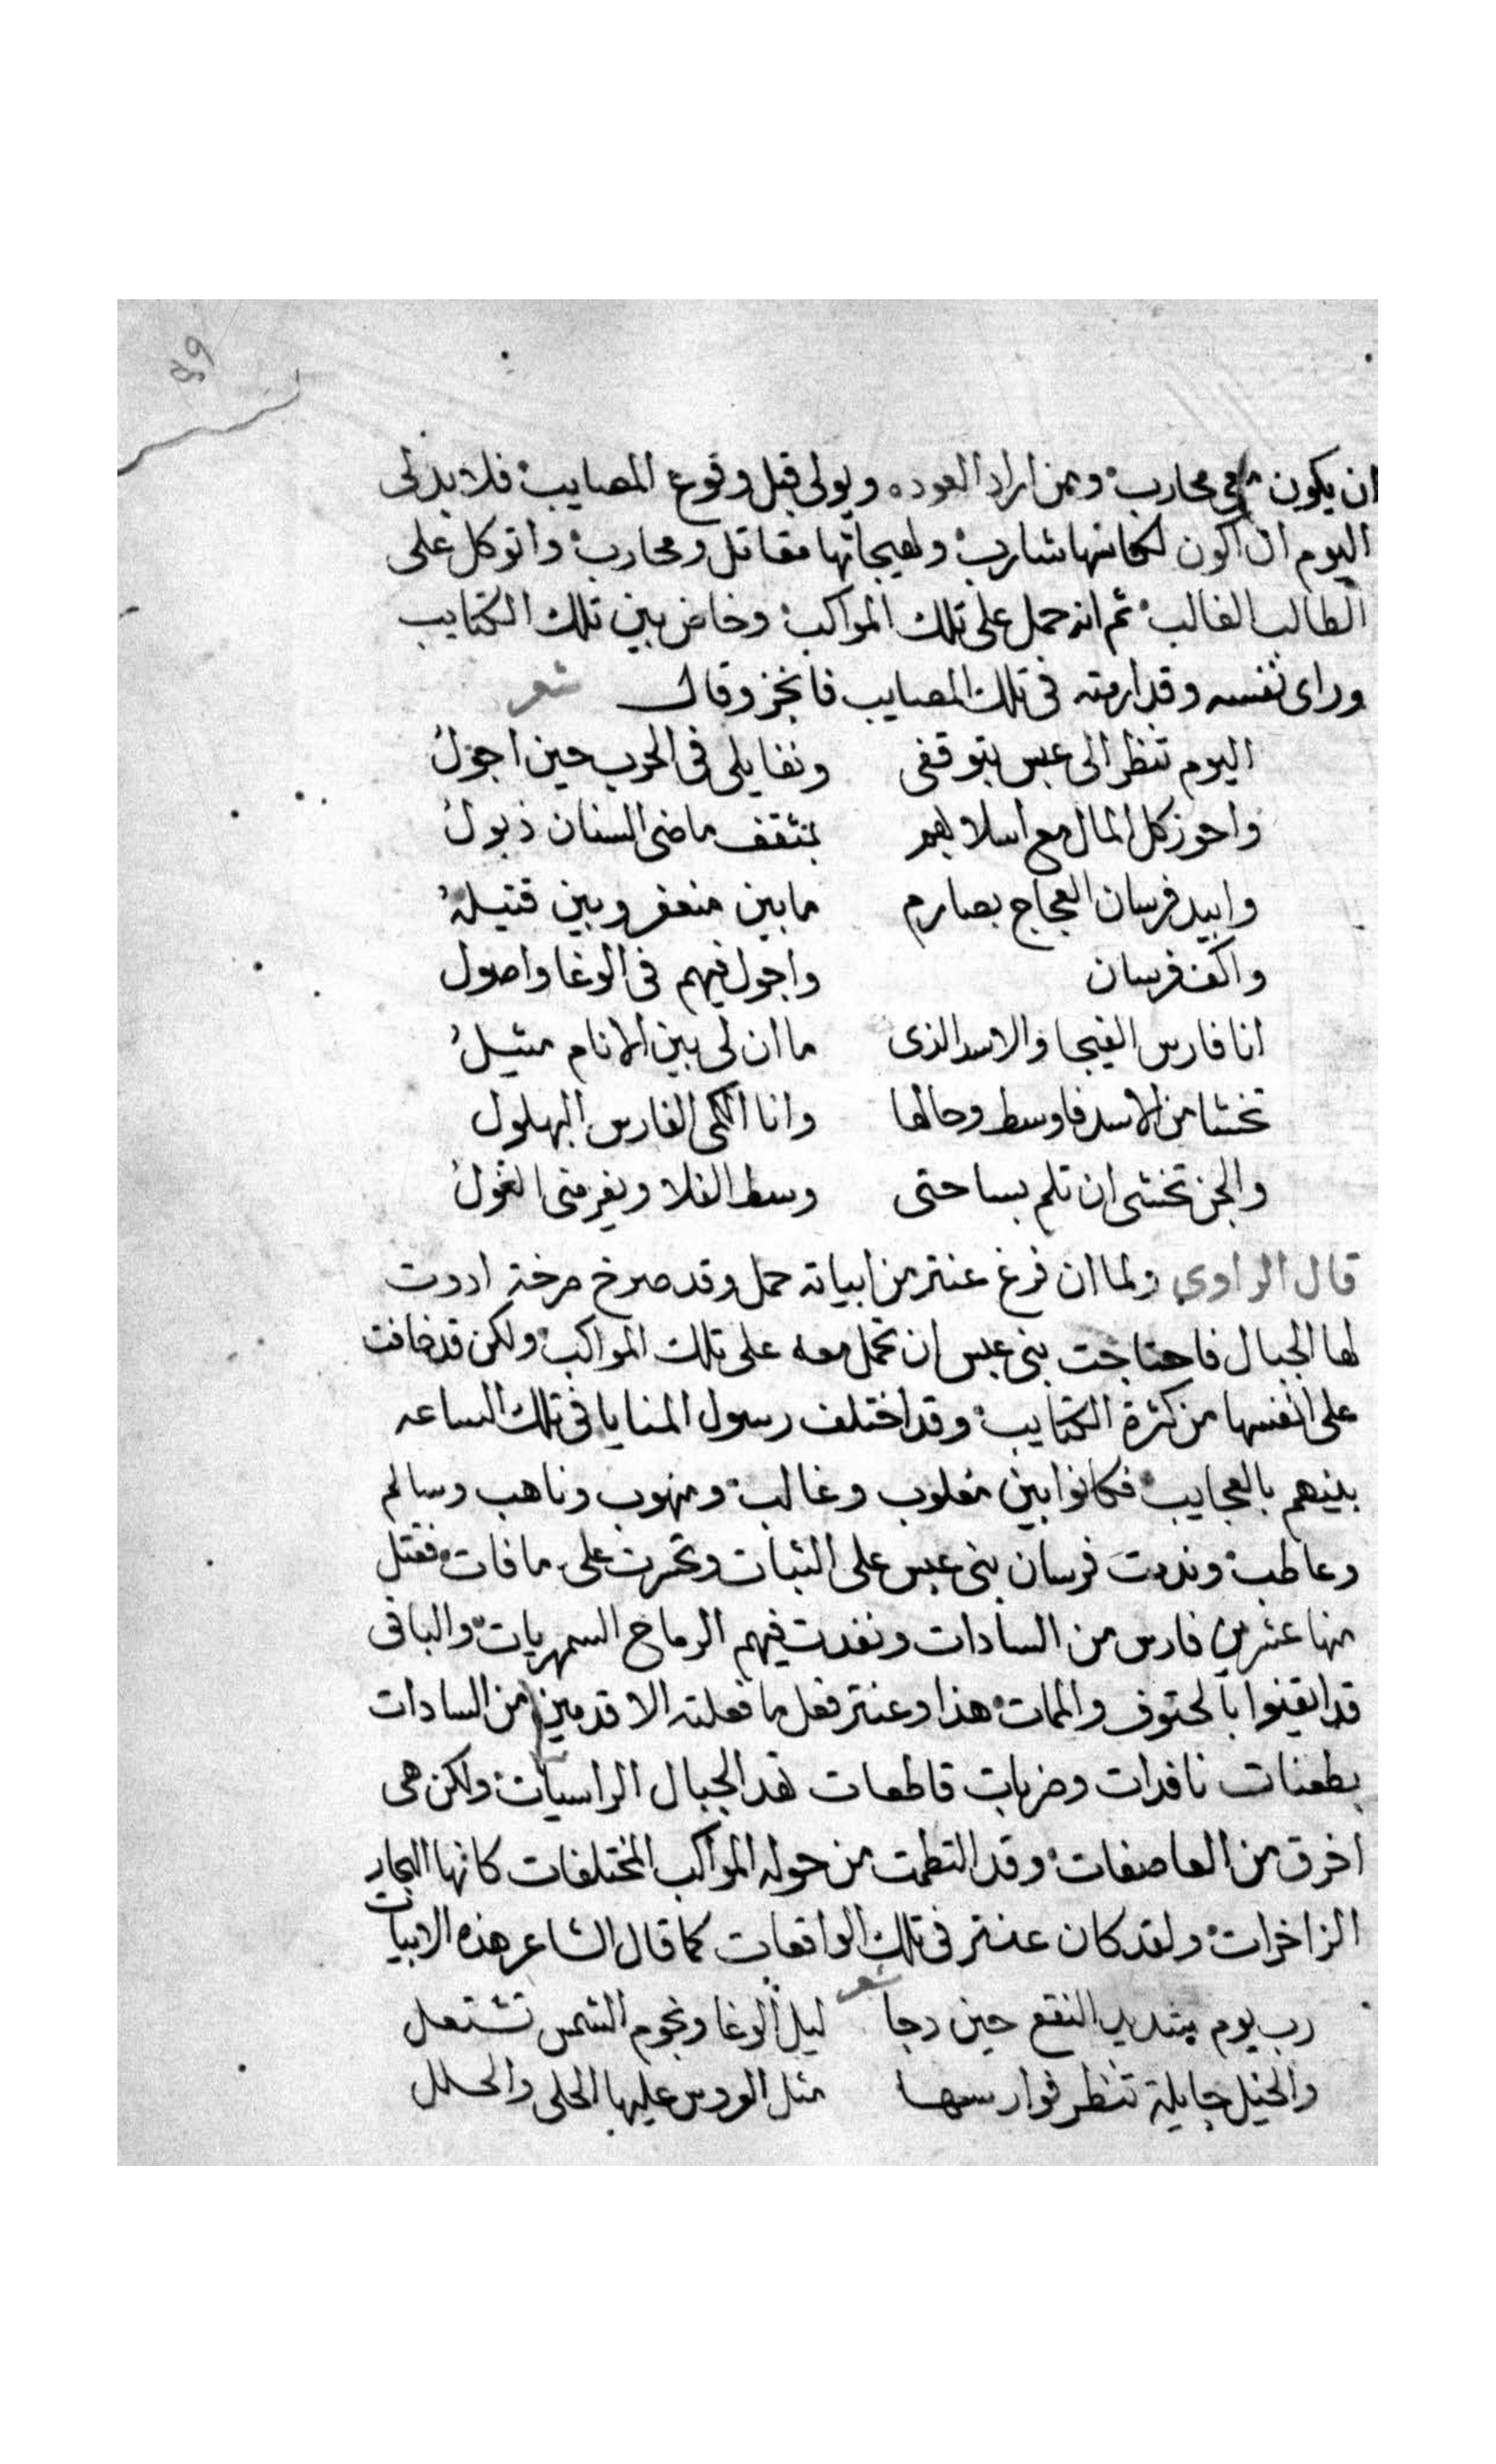 59
ان يكون معي محارب ومن اراد العوده ويولى قبل وقوع المصايب فلا بد لى
اليوم ان اكون لكاسها شارب ولهيجاتها مقاتل ومحارب واتوكل على
الطالب الغالب ثم انه حمل على تلك المواكب وخاض بين تلك الكتايب
وراى نفسه وقد ارمته فى تلك المصايب فانجز وقال شعر
اليوم تنظر الى عبس بتوقفى ونفايلى فى الحرب حين اجول
واحوز كل المال مع اسلابهم بمثقف ماضى السنان ذبول
وابيد فرسان العجاج بصارم مابين منعفر وبين قتيله
واكف فرسان واجول فيهم فى الوغا واصول
انا فارس الهيجا والاسد الذى ما ان لى بين الانام مثيل
تخشا من الاسد فا وسط وحالها وانا الكمى الفارس البهلول
والجن تخشى ان تلم بساحتى وسط الفلا ويفر منى الغول
قال الراوي ولما ان فرغ عنتر من ابياته حمل وقد صرخ صرخة ادوت
لها الجبال فاحتاجت بنى عبس ان تحمل معه على تلك المواكب ولكن قد خافت
على انفسها من كثرة الكتايب وقد اختلف رسول المنايا فى تلك الساعه
بينهم بالعجايب فكانوا بين مغلوب وغالب ومنهوب وناهب وسالم
وعاطب وندمت فرسان بنى عبس على الثبات وتحسرت على ما فات فقتل
منها عشرين فارس من السادات ونفدت فيهم الرماح السمهريات والباقى
قد ايقنوا بالحتوف والممات هذا وعنتر فعل ما فعلته الاقدمين من السادات
بطعنات نافدات وضربات قاطعات تهد الجبال الراسيات ولكن هى
اخرق من العاصفات وقد التطمت من حوله المواكب المختلفات كانها البحار
الزاخرات ولقد كان عنتر فى تلك الواقعات كما قال الشاعر هذه الابيات
شعر
رب يوم شديد النقع حين دجا ليل الوغا ونجوم الشمس تشتعل
والخيل جايلة تنظر فوارسها مثل العروس عليها الحلى والحلل